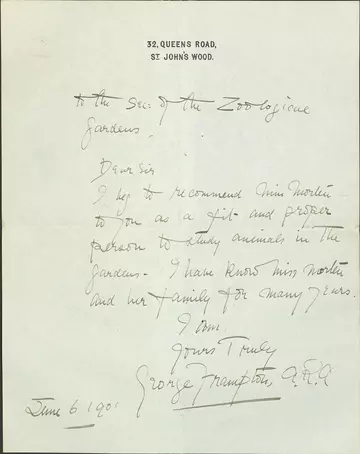 32, QUEENS ROAD,
ST JOHN'S WOOD.
to the Sec: of the Zoological
Gardens.
Dear Sir
I beg to recommend Miss Morten
to you as a fit and proper
person to study animals in The
Gardens - I have know Miss Morten
and her family for many years.
I am.
Yours Truly
George Frampton A.R.A
June 6